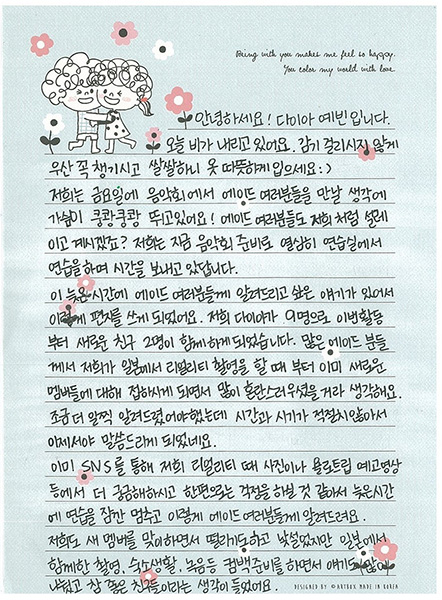 Being with you makes me feel so happy.
You color my world with love.
안녕하세요! 다이아 예빈입니다.
오늘 비가 내리고 있어요. 감기 걸리시지 않게
우산 꼭 챙기시고 쌀쌀하니 옷 따뜻하게 입으세요:)
저희는 금요일에 음악회에서 에이드 여러분들을 만날 생각에
가슴이 쿵쾅쿵쾅 뛰고있어요! 에이드 여러분들도 저희처럼 설레
이고 계시겠죠? 저희는 지금 음악회 준비로 열심히 연습실에서
연습을하며 시간을 보내고 있답니다.
이 늦은 시간에 에이드 여러분들께 알려드리고 싶은 얘기가 있어서
이렇게 편지를 쓰게 되었어요. 저희 다이아가 9명으로 이번활동
부터 새로운 친구 2명이 함께하게 되었습니다. 많은 에이드 분들
께서 저희가 일본에서 리얼리티 촬영을 할 때 부터 이미 새로운
멤버들에 대해 접하시게 되면서 많이 혼란스러우셨을거라 생각해요.
조금 더 일찍 알려드렸어야했는데 시간과 시기가 적절치않아서
이제서야 말씀드리게 되었네요.
이미 SNS를 통해 저희 리얼리티 때 사진이나 욜로트립 예고영상
등에서 더 궁금해하시고 한편으로는 걱정을 하실 것 같아서 늦은시간
에 연습을 잠깐 멈추고 이렇게 에이드 여러분들께 알려드려요.
저희도 새 멤버를 맞이하면서 떨리기도하고 낯설었지만 일본에서
함께한 촬영, 숙소생활, 녹음등 컴백준비를 하면서 얘기도 많이
나눴고 참 좋은 친구들이라는 생각이 들었어요.
DESIGNED BY ©ARTBOX MADE IN KOREA